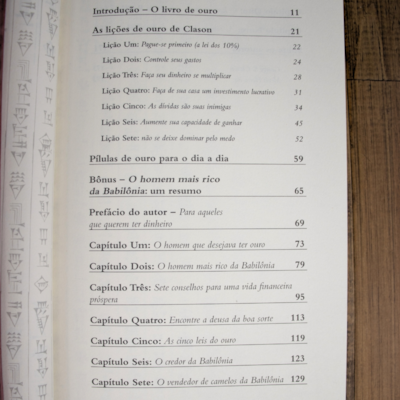 Introdução – O livro de ouro 11
As lições de ouro de Clason 21
Lição Um: Pague-se primeiro (a lei dos 10%) 22
Lição Dois: Controle seus gastos 24
Lição Três: Faça seu dinheiro se multiplicar 28
Lição Quatro: Faça de sua casa um investimento lucrativo 31
Lição Cinco: As dívidas são suas inimigas 34
Lição Seis: Aumente sua capacidade de ganhar 45
Lição Sete: não se deixe dominar pelo medo 52
Pílulas de ouro para o dia a dia 59
Bônus – O homem mais rico
da Babilônia: um resumo 65
Prefácio do autor – Para aqueles
que querem ter dinheiro 69
Capítulo Um: O homem que desejava ter ouro 73
Capítulo Dois: O homem mais rico da Babilônia 79
Capítulo Três: Sete conselhos para uma vida financeira
próspera 95
Capítulo Quatro: Encontre a deusa da boa sorte 113
Capítulo Cinco: As cinco leis do ouro 119
Capítulo Seis: O credor da Babilônia 123
Capítulo Sete: O vendedor de camelos da Babilônia 129